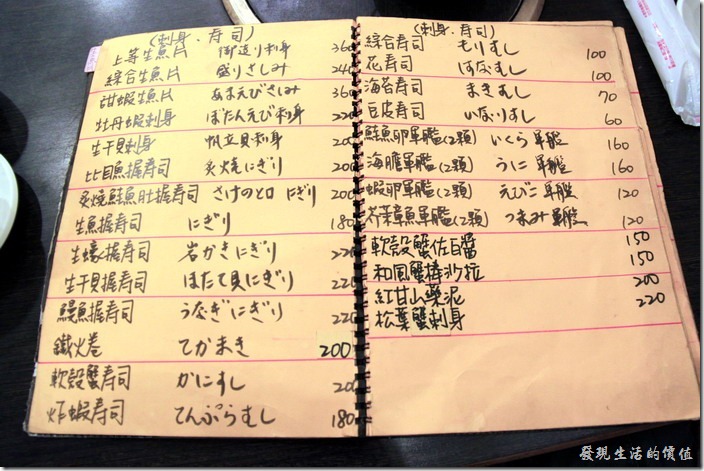 (刺身、寿司)
上等生魚片 街道り刺身 360
綜合生魚片 盛りさしみ 240
甜蝦生魚片 あまえびさしみ 360
牡丹蝦刺身 ぼたんえび刺身 220
生干貝刺身 帆立貝刺身 200
比目魚握寿司 炙焼にぎり 200
炙燒鮭魚肚握寿司 さけのとロ にぎり 200
生魚握寿司 にぎり 180
生蠔握寿司 岩かきにぎり 220
生干貝握寿司 ほたて貝にぎり 220
鰻魚握寿司 うなぎにぎり 220
鐵火巻 てかまき 200
軟殼蟹寿司 かにすし 200
炸蝦寿司 てんぷらむし 180
(刺身、寿司)
綜合寿司 もりすし 100
花寿司 はなむし 100
海苔寿司 まきむし 70
豆皮寿司 いなりすし 60
鮭魚卵軍艦(2顆) いくら軍艦 160
海膽軍艦(2顆) うに軍艦 160
蝦卵軍艦(2顆) えびこ軍艦 120
芥茉章魚軍艦(2顆) つまみ軍艦 120
軟殼蟹佐白醬 150
和風蟹棒沙拉 150
紅甘山藥泥 200
松葉蟹刺身 220
發現生活的價值